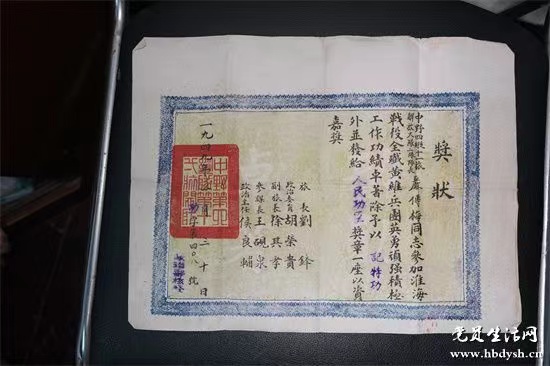 獎狀
盧傳梅同志參加淮海
戰役全殲黃維兵團英勇頑強積極
工作功績卓著除予以記特功
外並發給人民功臣獎章一座以資
嘉獎
旅長劉鋒
政治委員胡榮貴
副旅長徐其孝
參謀長王硯泉
政治主任侯良輔
一九四九年 月二十日
字第 四〇八 號
党员生活网
www.hbdysh.cn